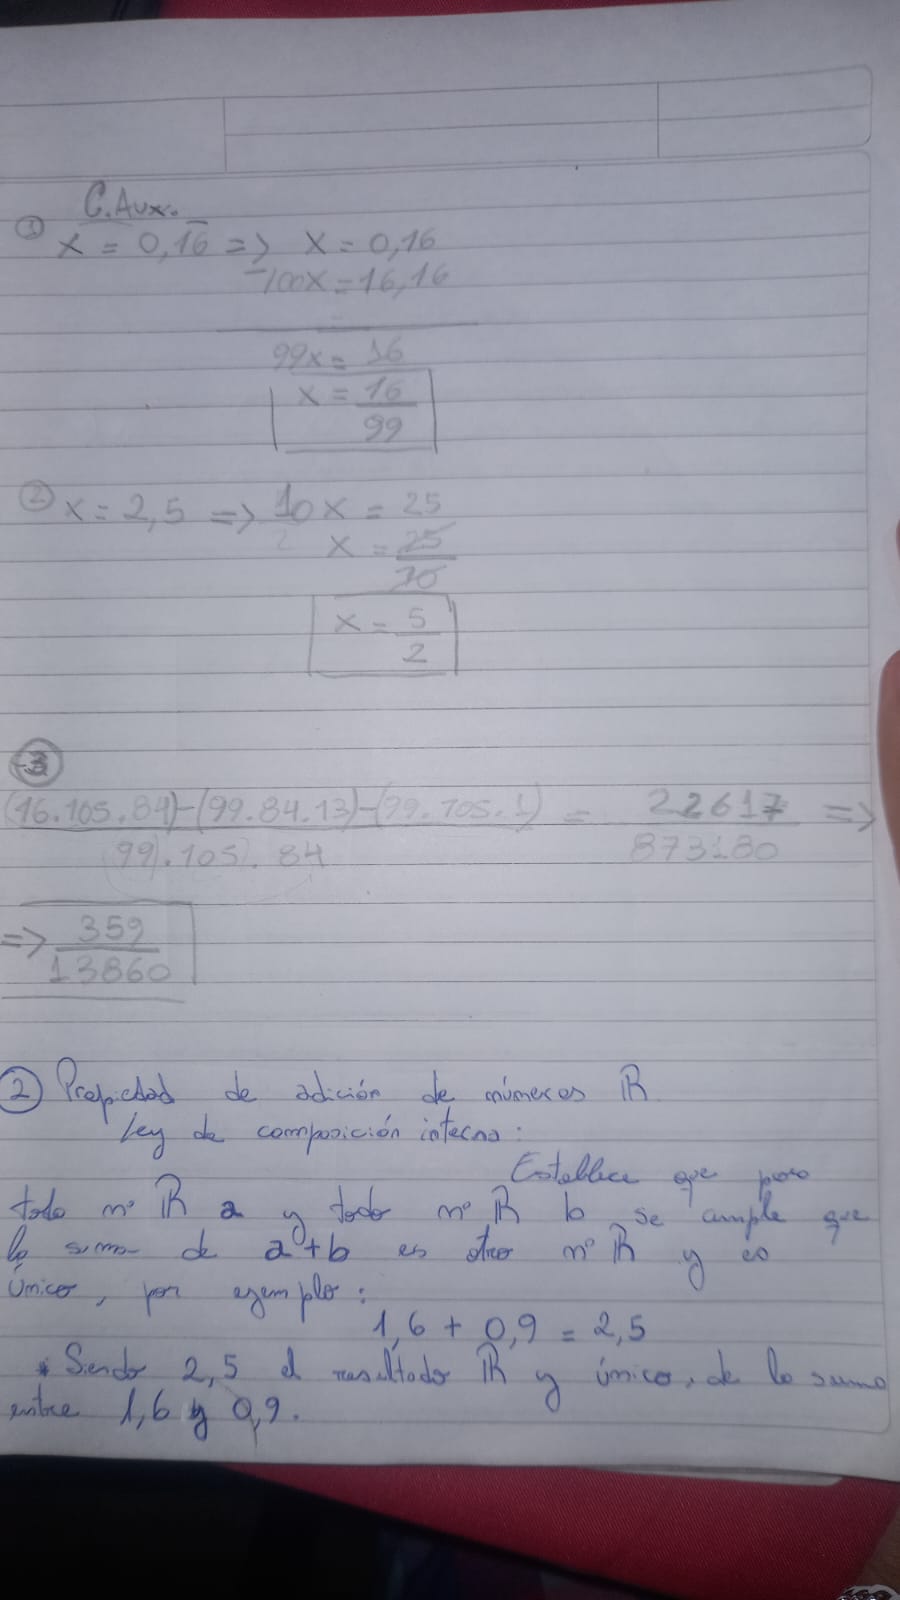 C.Aux.
① x = 0,1̅6̅ => x = 0,16
-100x = 16,16
99x = 16
x = 16
99
② x = 2,5 => 10x = 25
x = 25
10
x = 5
2
3
(16.105.84)-(99.84.13)-(99.105.1) = 22617 =>
99).105). 84 873180
=> 359
13860
② Propiedad de adición de números ℝ
Ley de composición interna:
Establece que para
todo nº ℝ a y todo nº ℝ b se cumple que
la suma de a+b es otro nº ℝ y es
único, por ejemplo:
1,6 + 0,9 = 2,5
Sendo 2,5 el resultado ℝ y único, de la suma
entre 1,6 y 0,9.